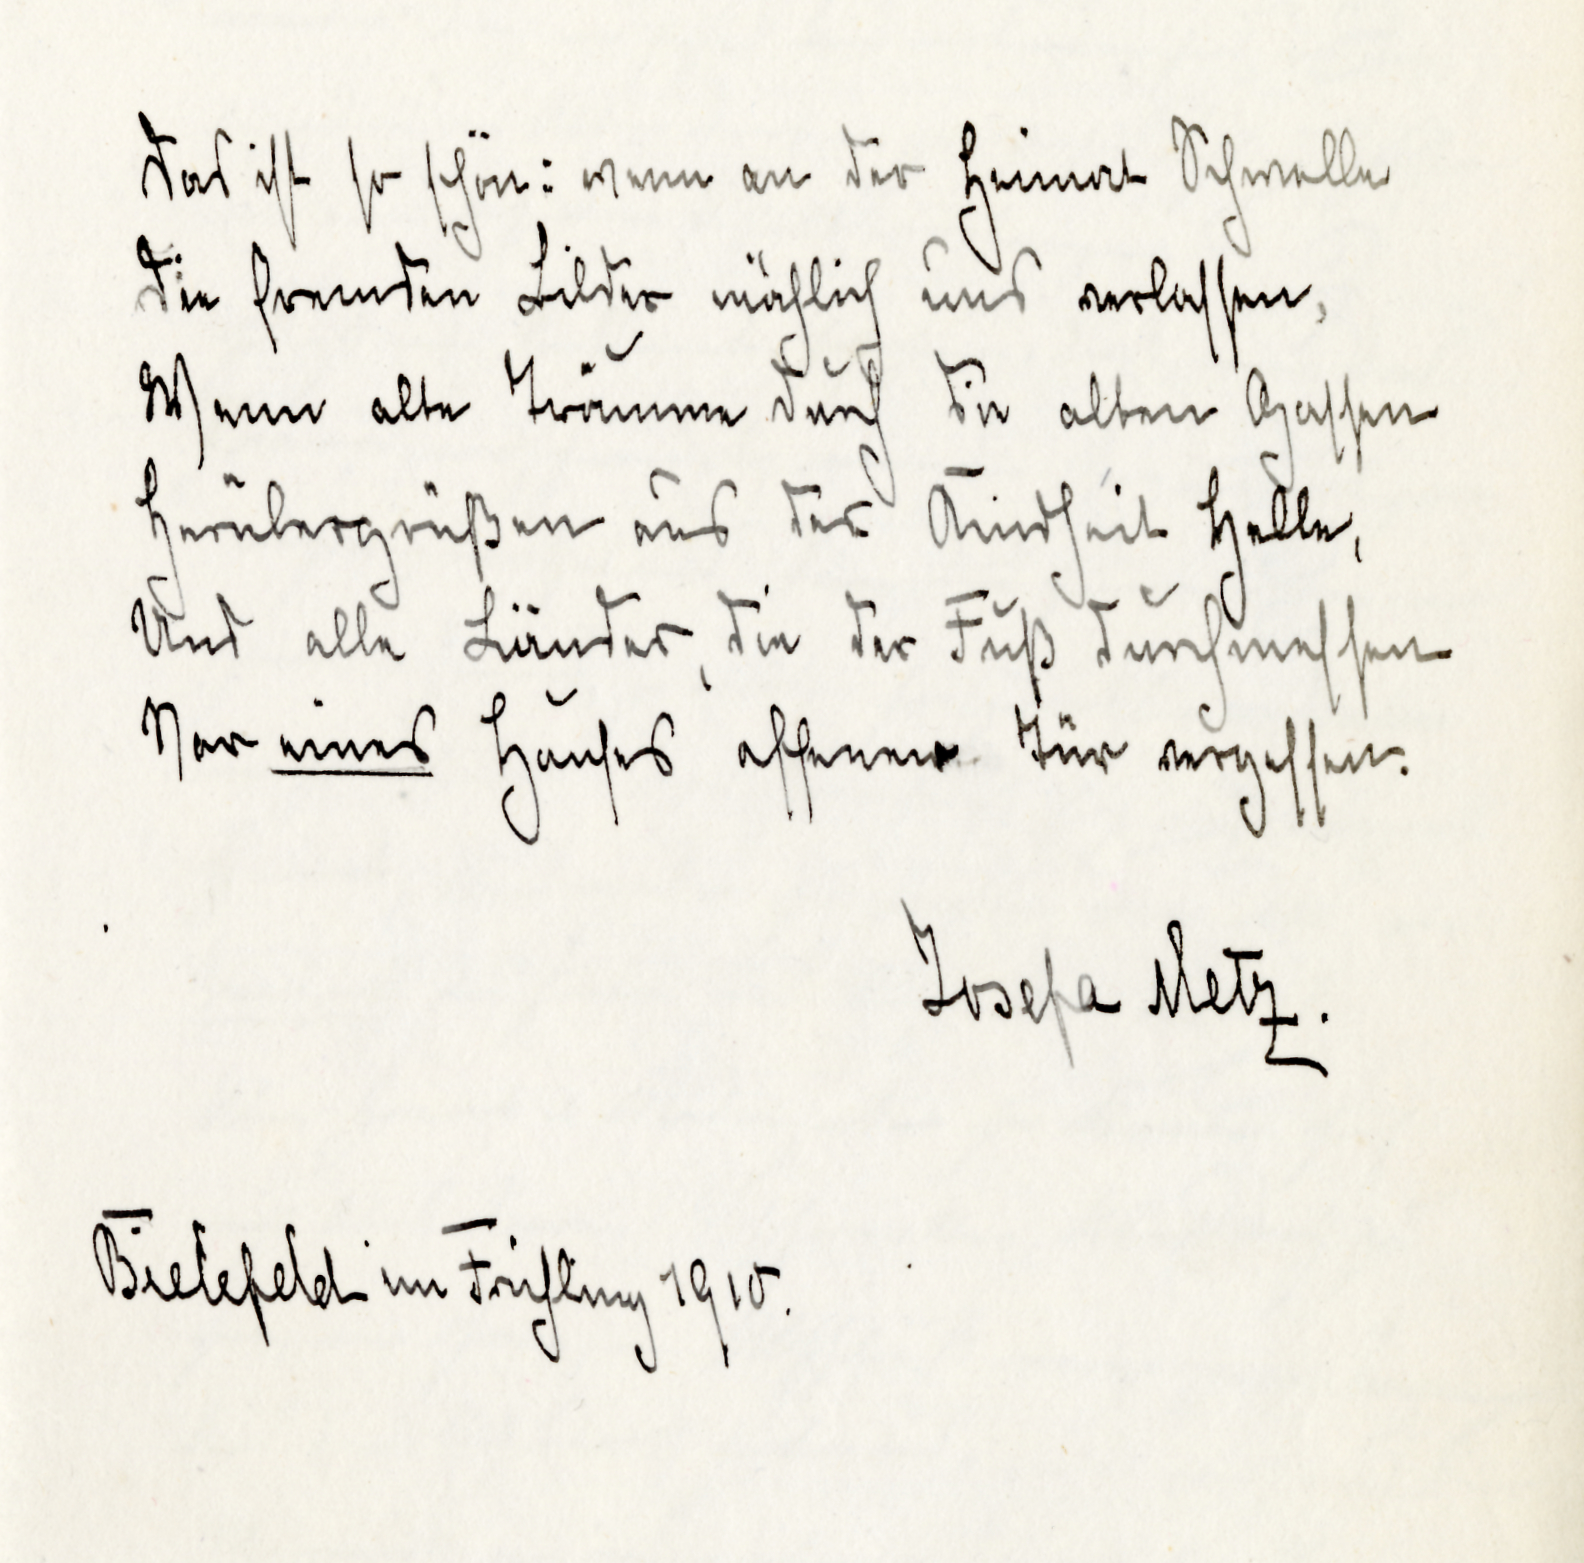 Das ist so schön: wenn an der Heimat Schwelle
Die fremden Bilder mählich uns verlassen,
Wenn alte Träume durch die alten Gassen
Herübergrüßen aus der Kindheit Helle,
Und alle Länder, die der Fuß durchmessen
Vor eines Hauses offener Tür vergessen.
Josefa Metz.
Bielefeld im Frühling 1910.